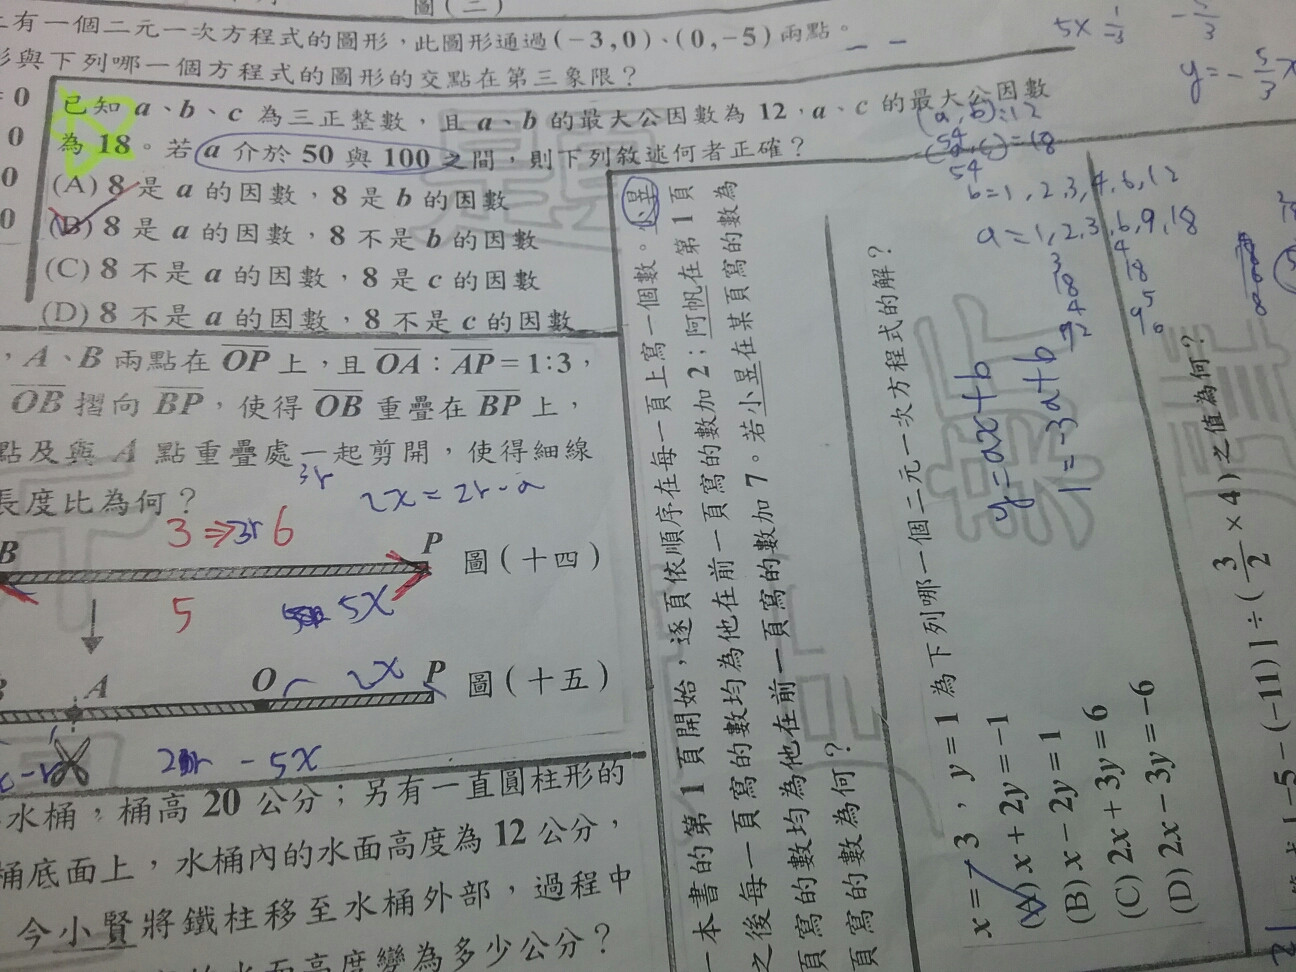 圖(二)
有一個二元一次方程式的圖形，此圖形通過(-3,0)、(0,-5)兩點。
形與下列哪一個方程式的圖形的交點在第三象限？
= 0
0
0
0
已知 a、b、c 為三正整數，且 a、b 的最大公因數為 12，a、c 的最大公因數
為 18。若 a 介於 50 與 100 之間，則下列敘述何者正確？
(A) 8 是 a 的因數，8 是 b 的因數
(B) 8 是 a 的因數，8 不是 b 的因數
(C) 8 不是 a 的因數，8 是 c 的因數
(D) 8 不是 a 的因數，8 不是 c 的因數
(a, b) = 12
54
b = 1, 2, 3, 4, 6, 12
a = 1, 2, 3, 6, 9, 18
y = -5/3 x
，A、B 兩點在 OP 上，且 OA：AP = 1:3，
OB 摺向 BP，使得 OB 重疊在 BP 上，
點及與 A 點重疊處一起剪開，使得細線
長度比為何？
3r
2x = 2r - a
3 ⇒ 3r 6
B
P
圖(十四)
5
5x
A
O
2x
P
圖(十五)
- 5x
水桶，桶高 20 公分；另有一直圓柱形的
桶底面上，水桶內的水面高度為 12 公分，
今小賢將鐵柱移至水桶外部，過程中
水面高度變為多少公分？
一本書的第 1 頁開始，逐頁依順序在每一頁上寫一個數。小昱在第 1 頁
之後每一頁寫的數均為他在前一頁寫的數加 2；阿帆在第 1 頁
頁寫的數均為他在前一頁寫的數加 7。若小昱在某頁寫的數為
頁寫的數為何？
x = -3，y = 1 為下列哪一個二元一次方程式的解？
(A) x + 2y = -1
(B) x - 2y = 1
(C) 2x + 3y = 6
(D) 2x - 3y = -6
y = ax + b
1 = -3a + b
| -5 - (-11) | ÷ (3/2 × 4) 之值為何？